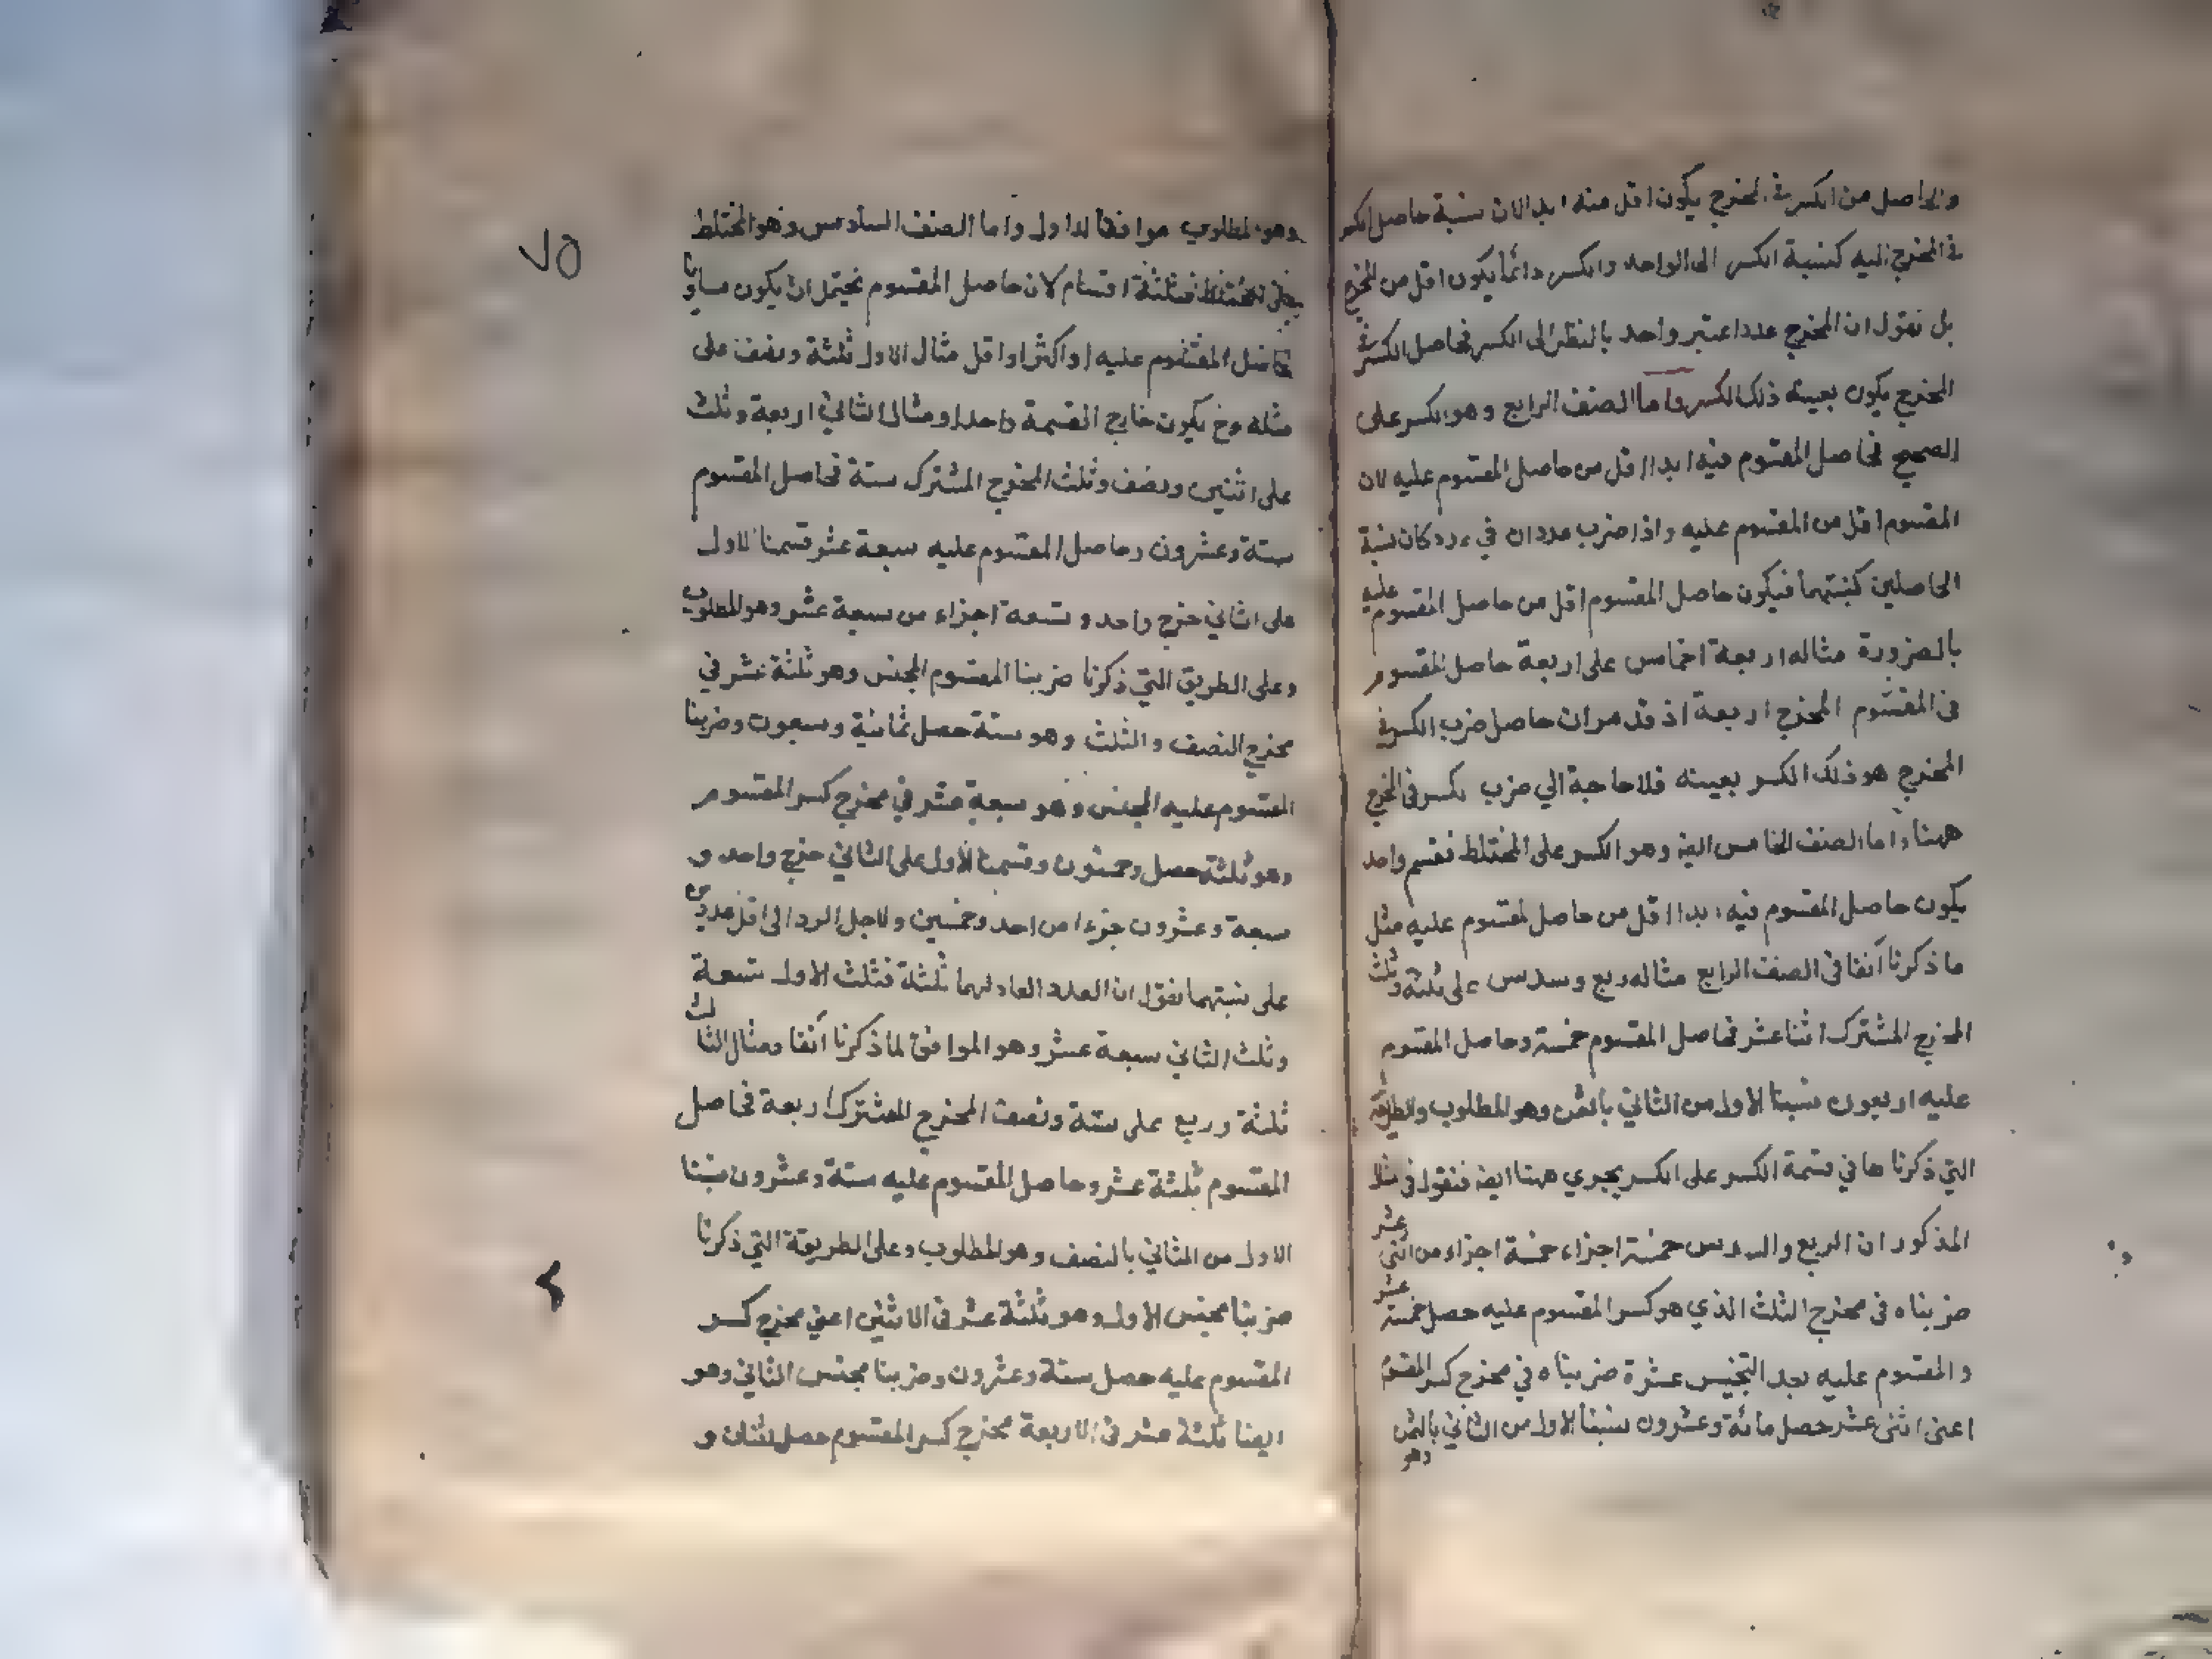 والحاصل من الكسر في المخرج يكون اقل منه ابدا لان نسبة حاصل الكسر
في المخرج اليه كنسبة الكسر الى الواحد والكسر دائما يكون اقل من المخرج
بل نقول ان المخرج عدد اعتبر واحد بالنظر الى الكسر فحاصل الكسر في
المخرج يكون بعينه ذلك الكسر واما الصنف الرابع وهو الكسر على
الصحيح فحاصل المقسوم فيه ابدا اقل من حاصل المقسوم عليه لان
المقسوم اقل من المقسوم عليه واذا ضرب عددان في عدد كان نسبة
الحاصلين كنسبتهما فيكون حاصل المقسوم اقل من حاصل المقسوم عليه
بالضرورة مثاله اربعة اخماس على اربعة حاصل المقسوم
في المقسوم المخرج اربعة اذ قد مر ان حاصل ضرب الكسر في
المخرج هو ذلك الكسر بعينه فلا حاجة الي ضرب الكسر في المخرج
ههنا واما الصنف الخامس ايضا وهو الكسر على المختلط فقسم واحد
يكون حاصل المقسوم فيه ابدا اقل من حاصل المقسوم عليه مثل
ما ذكرنا آنفا في الصنف الرابع مثاله ربع وسدس على ثلثة وثلث
المخرج المشترك اثنا عشر فحاصل المقسوم خمسة وحاصل المقسوم
عليه اربعون نسبنا الأول من الثاني بالثمن وهو المطلوب والطريقة
التي ذكرنا ها في قسمة الكسر على الكسر يجري ههنا ايضا فنقول في مثلا
المذكور ان الربع والسدس خمسة اجزاء خمسة اجزاء من اثني عشر
ضربناه في مخرج الثلث الذي هو كسر المقسوم عليه حصل خمسة عشر
والمقسوم عليه بعد التجنيس عشرة ضربناه في مخرج كسر المقسوم
اعنى اثنى عشر حصل مائة وعشرون نسبنا الاول من الثاني بالثمن
وهو
٧٥
وهو المطلوب موافقا للاول واما الصنف السادس وهو المختلط
على المختلط فثلثة اقسام لان حاصل المقسوم يحتمل ان يكون مساويا
حاصل المقسوم عليه او اكثر او اقل مثال الاول ثلثة ونصف على
مثله وح يكون خارج القسمة واحدا ومثال الثاني اربعة وثلث
على اثنين ونصف وثلث المخرج المشترك ستة فحاصل المقسوم
ستة وعشرون وحاصل المقسوم عليه سبعة عشر قسمنا الاول
على الثاني خرج واحد و تسعة اجزاء من سبعة عشر وهو المطلوب
وعلى الطريق التي ذكرنا ضربنا المقسوم المجنس وهو ثلثة عشر في
مخرج النصف والثلث وهو ستة حصل ثمانية وسبعون وضربنا
المقسوم عليه المجنس وهو سبعة عشر في مخرج كسر المقسوم
وهو ثلثة حصل وخمسون وقسمنا الأول على الثاني خرج واحد و
سبعة وعشرون جزءا من احد وخمسين ولاجل الرد الى اقل عددين
على نسبتهما نقول ان العدد العاد لهما ثلثة فثلث الاول تسعة
وثلث الثاني سبعة عشر وهو الموافق لما ذكرنا آنفا ومثال الثالث
ثلثة وربع على ستة ونصف المخرج المشترك اربعة فحاصل
المقسوم ثلثة عشر وحاصل المقسوم عليه ستة وعشرون نسبنا
الاول من الثاني بالنصف وهو المطلوب وعلى الطريقة التي ذكرنا
ضربنا مجنس الأول وهو ثلثة عشر في الاثنين اعني مخرج كسر
المقسوم عليه حصل ستة وعشرون وضربنا مجنس الثاني وهو
ايضا ثلثة عشر في الاربعة مخرج كسر المقسوم حصل اثنان و